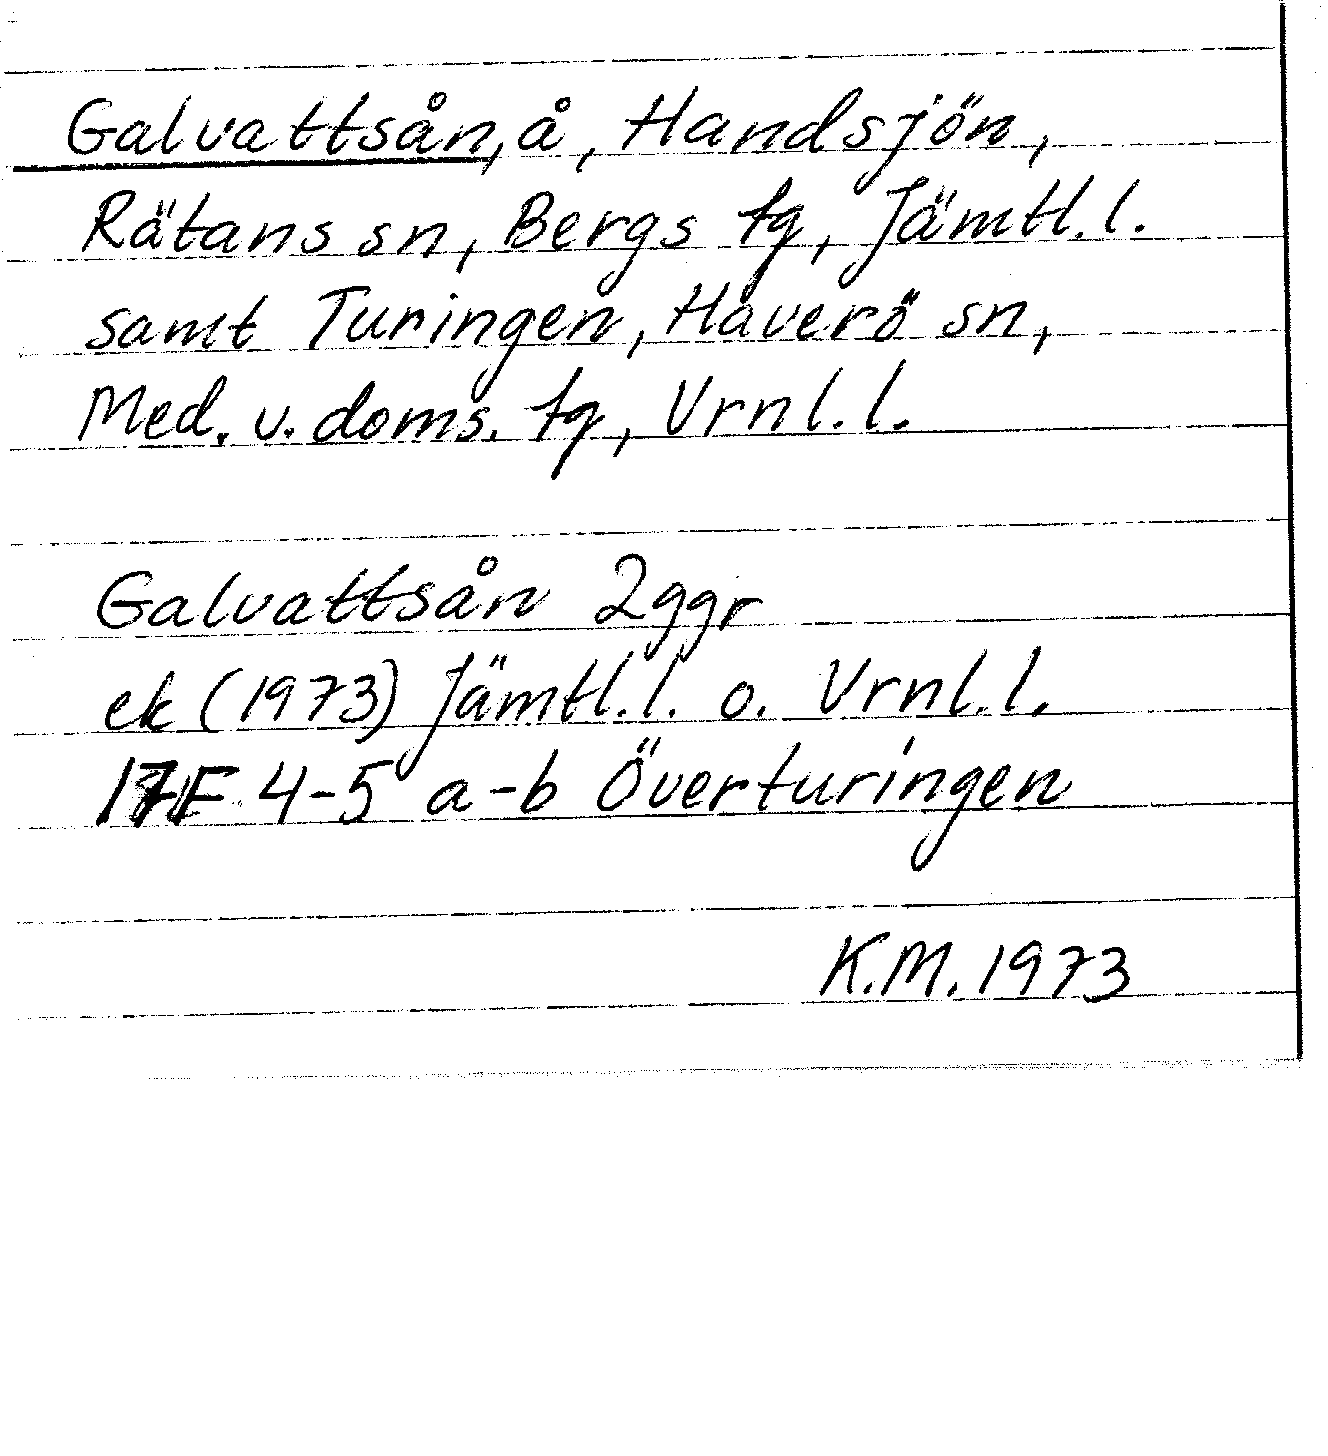 Galvattsån, å, Handsjön,
Rätans sn, Bergs tg, Jämtl. l.
samt Turingen, Haverö sn,
Med. v. doms. tg, Vrnl. l.
Galvattsån 2ggr
ek (1973) Jämtl. l. o. Vrnl. l.
17F 4-5 a-b Överturingen
K.M. 1973